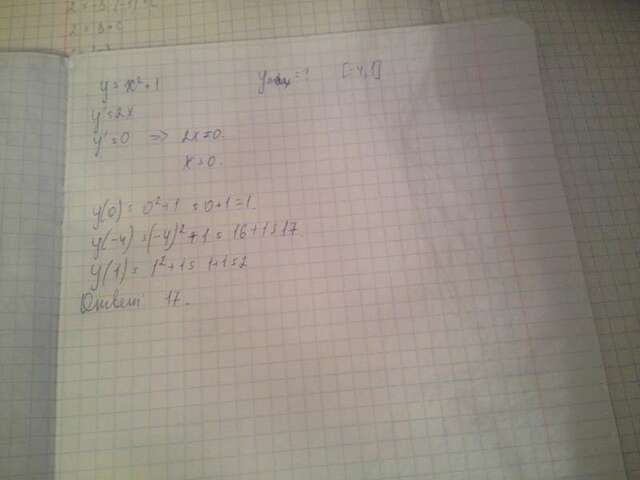 y = x² + 1 [-4, 1]
y' = 2x
y' = 0 => 2x = 0.
x = 0.
y(0) = 0² + 1 = 0 + 1 = 1.
y(-4) = (-4)² + 1 = 16 + 1 = 17
y(1) = 1² + 1 = 1 + 1 = 2
Ответ 17.